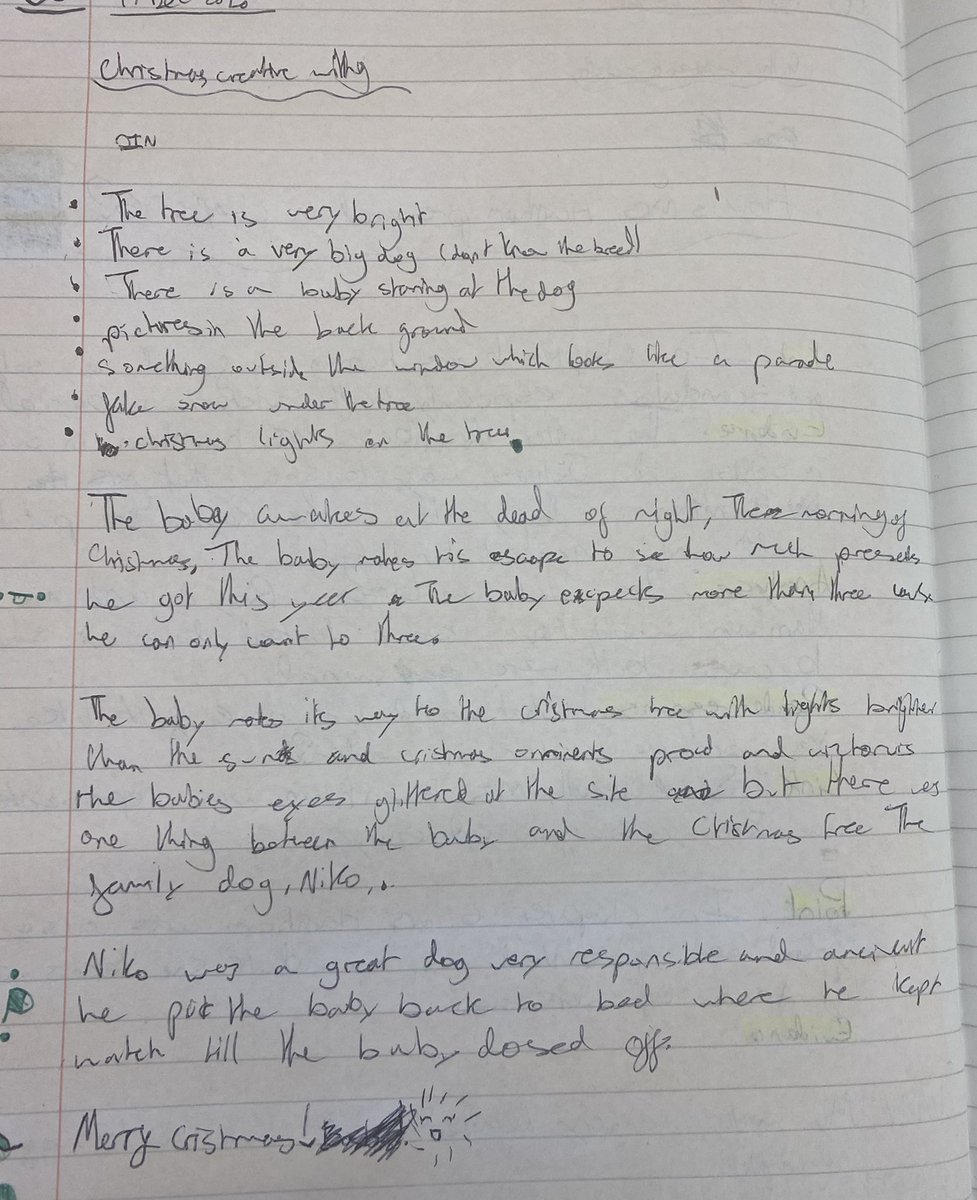 Christmas creative
DIN
The tree is very bright
There is a very big dog (dont know the breed)
There is a baby staring at the dog
pictures in the back ground
something outside the window which looks like a parade
fake snow under the tree
christmas lights on the tree
The baby awakes at the dead of night, The morning of
Christmas, The baby makes his escape to see how much presents
he got this year The baby excpects more than three
he can only count to three.
The baby its way to the cristmas tree with lights brighter
than the and cristmas proud and
the babies eyes glittered at the site but there was
one thing between the baby and the Cristmas tree The
family dog, Niko,.
Niko was a great dog very responsible and
he put the baby back to bed where he kept
watch till the baby dosed off.
Merry Cristmas!